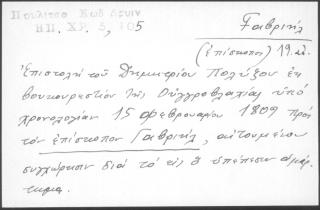 Πουλίτσα Κωδ
ΒΠ. ΧΡ. 5, 105
Γαβριήλ
(ἐπίσκοπος) 19. αἰ.
Ἐπιστολή τοῦ Δημητρίου Πολύζου ἐκ
Βουκουρεστίου τῆς Οὑγγροβλαχίας ὑπό
χρονολογίαν 15 φεβρουαρίου 1809 πρός
τόν ἐπίσκοπον Γαβριήλ, αἰτουμένου
συγχώρησιν διά τό εἰς ὃ ὑπέπεσεν ἁμάρ-
τημα.